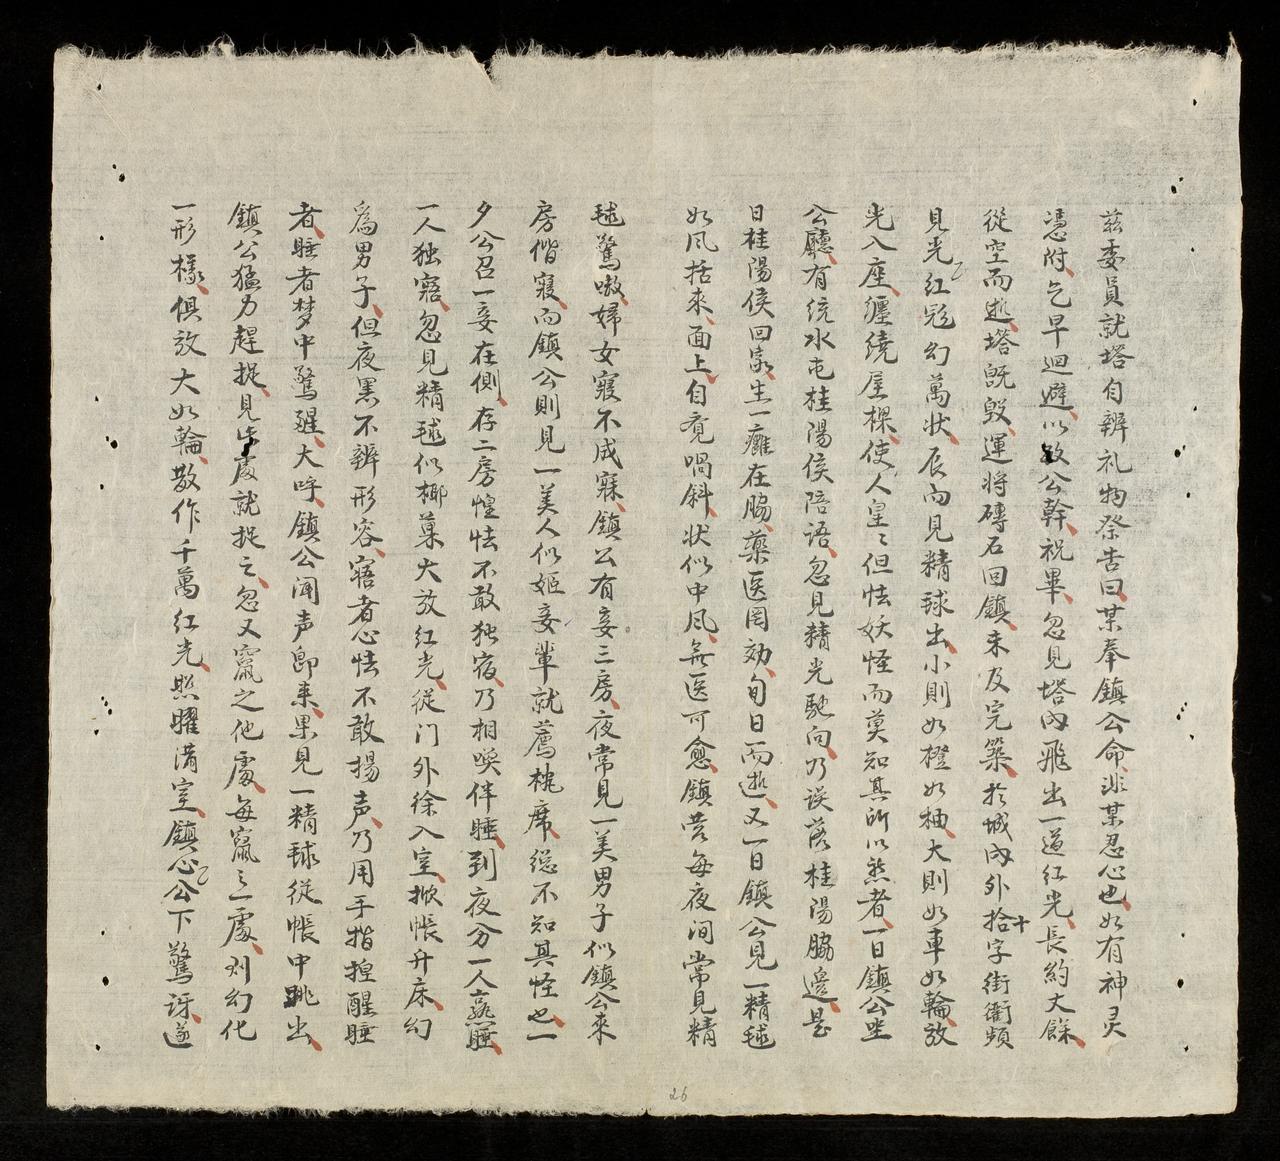 茲委員就塔自辨礼物祭告曰某奉鎮公命非某忍心也如有神灵
憑附乞早迴避以敦公幹祝畢忽見塔内飛出一道紅光長約丈餘
從空而逝塔既毀運将磚石回鎮未及完築於城内外拾十字街衢頻
見光紅彩幻萬状辰而見精球出小則如橙如柚大則如車如輪放
光入座纏繞屋樑使人皇々但怯妖怪而莫知其所以然者一日鎮公坐
公廳有统水屯桂陽侯陪语忽見精光馳向乃误落桂陽脇邊是
日桂陽侯回家生一癰在脇藥医罔効旬日而逝又一日鎮公見一精毬
如风括來面上自覓喎斜状似中风無医可愈鎮营每夜间常見精
毬驚嗷婦女寢不成寐鎮公有妾三房夜常見一美男子似鎮公來
房偕寢而鎮公則見一美人似姬妾輩就薦枕席总不知其怪也一
夕公召一妾在側存二房惶怯不敢独宿乃相唤伴睡到夜分一人熟睡
一人独寤忽見精毬似椰菓大放紅光從门外徐入室掀帳升床幻
為男子但夜黑不辨形容寤者心怯不敢揚声乃用手指揑醒睡
者睡者梦中驚醒大呼鎮公闻声即来果見一精球從帳中跳出
鎮公猛力趕捉見 處就捉之忽又竄之他處每竄之一處則幻化
一形樣俱放大如輪散作千萬紅光照曜满室鎮心公下驚讶遂
26